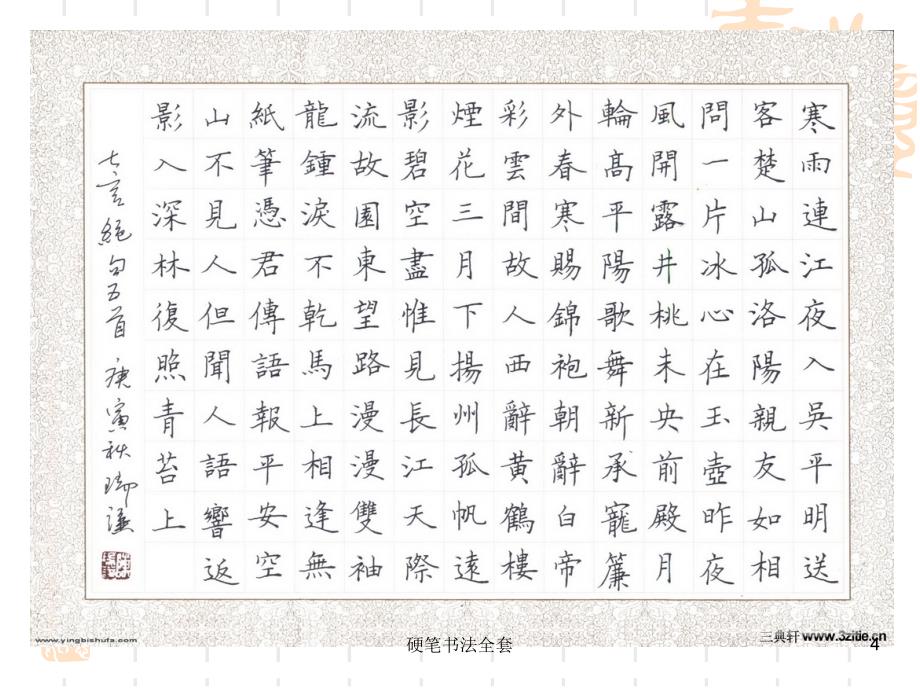 寒雨連江夜入吳平明送
客楚山孤洛陽親友如相
問一片冰心在玉壺昨夜
風開露井桃未央前殿月
輪髙平陽歌舞新承寵簾
外春寒賜錦袍朝辭白帝
彩雲間故人西辭黃鶴樓
煙花三月下揚州孤帆遠
影碧空盡惟見長江天際
流故園東望路漫漫雙袖
龍鍾淚不乾馬上相逢無
紙筆憑君傳語報平安空
山不見人但聞人語響返
影入深林復照青苔上
七言絕句五首 庚寅秋
www.yingbishufa.com
三典轩 www.3zitie.cn
硬笔书法全套
4